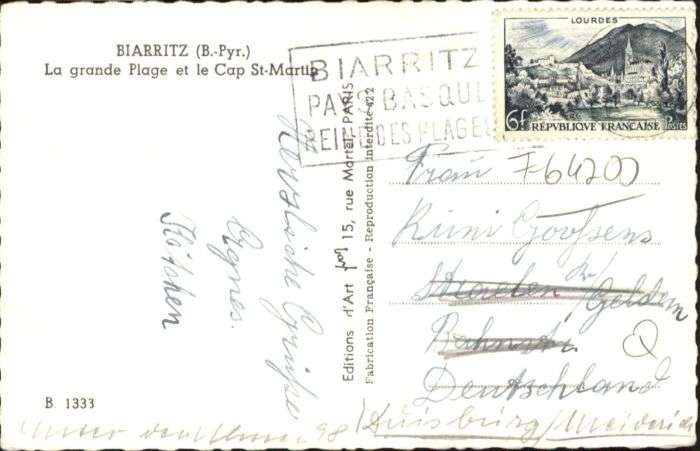 BIARRITZ (B.-Pyr.)
La grande Plage et le Cap St-Martin
BIARRITZ
PAYS BASQUE
REINE DES PLAGES
LOURDES
6f RÉPUBLIQUE FRANÇAISE Postes
Herzliche Grüße
Agnes.
Käthchen
Editions d'Art 15, rue Martel, PARIS
Fabrication Française - Reproduction Interdite
Frau F64200
Goossens
Straelen Geldern
Bahnstr.
Deutschland
B. 1333
Unter den Ulmen 98 / Duisburg / Meiderich